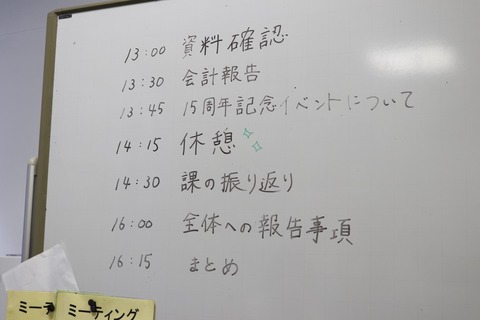 13:00 資料確認
13:30 会計報告
13:45 15周年記念イベントについて
14:15 休憩
14:30 課の振り返り
16:00 全体への報告事項
16:15 まとめ
ミーテ
ミーティング